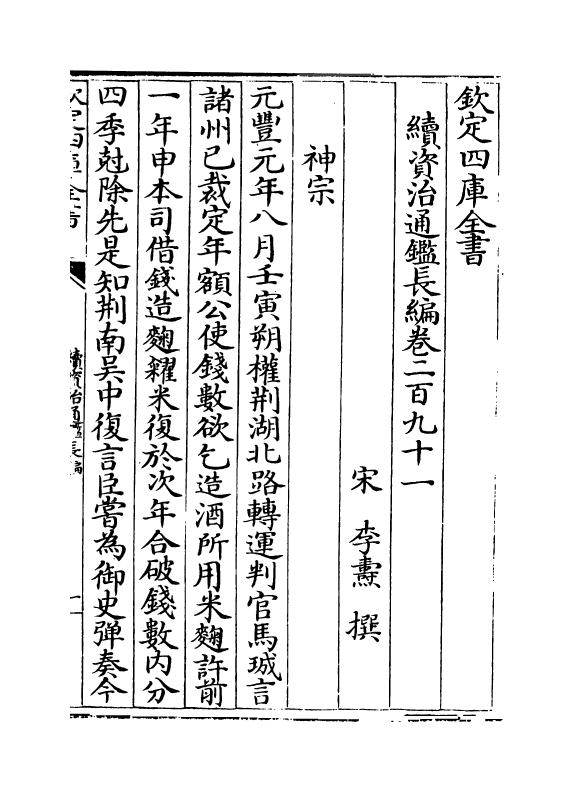 欽定四庫全書
續資治通鑑長編卷二百九十一
宋 李燾 撰
神宗
元豐元年八月壬寅朔權荆湖北路轉運判官馬瑊言
諸州已裁定年額公使錢數欲乞造酒所用米麴許前
一年申本司借錢造麴糴米復於次年合破錢數内分
四季尅除先是知荆南吳中復言臣嘗為御史彈奏今
欽定四庫全書
續資治通鑑長編
一